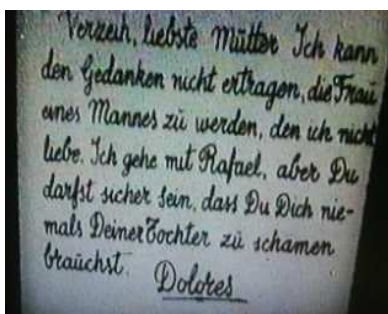 Verzeih, liebste Mutter Ich kann
den Gedanken nicht ertragen, die Frau
eines Mannes zu werden, den ich nicht
liebe. Ich gehe mit Rafael, aber Du
darfst sicher sein, dass Du Dich nie-
mals Deiner Tochter zu schamen
brauchst.
Dolores